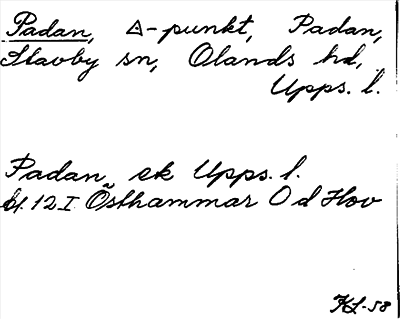 Padan, △-punkt, Padan,
Stavby sn, Olands hd,
Upps. l.
Padan ek Upps. l.
bl. 12 I. Östhammar O d Hov
KL-58